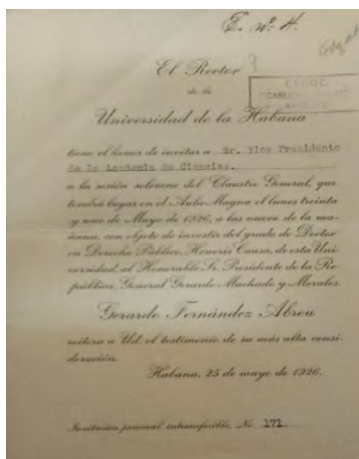 E. nº H.
El Rector
de la
Universidad de la Habana
tiene el honor de invitar a Sr. Vice Presidente
de la Academia de Ciencias.
a la sesión solemne del Claustro General, que
tendrá lugar en el Aula Magna el lunes treinta
y uno de Mayo de 1926, a las nueve de la ma-
ñana, con objeto de investir del grado de Doctor
en Derecho Público, Honoris Causa, de esta Uni-
versidad, al Honorable Sr. Presidente de la Re-
pública, General Gerardo Machado y Morales.
Gerardo Fernández Abreu
reitera a Ud. el testimonio de su más alta consi-
deración.
Habana, 25 de mayo de 1926.
Invitación personal, intransferible, No 171.